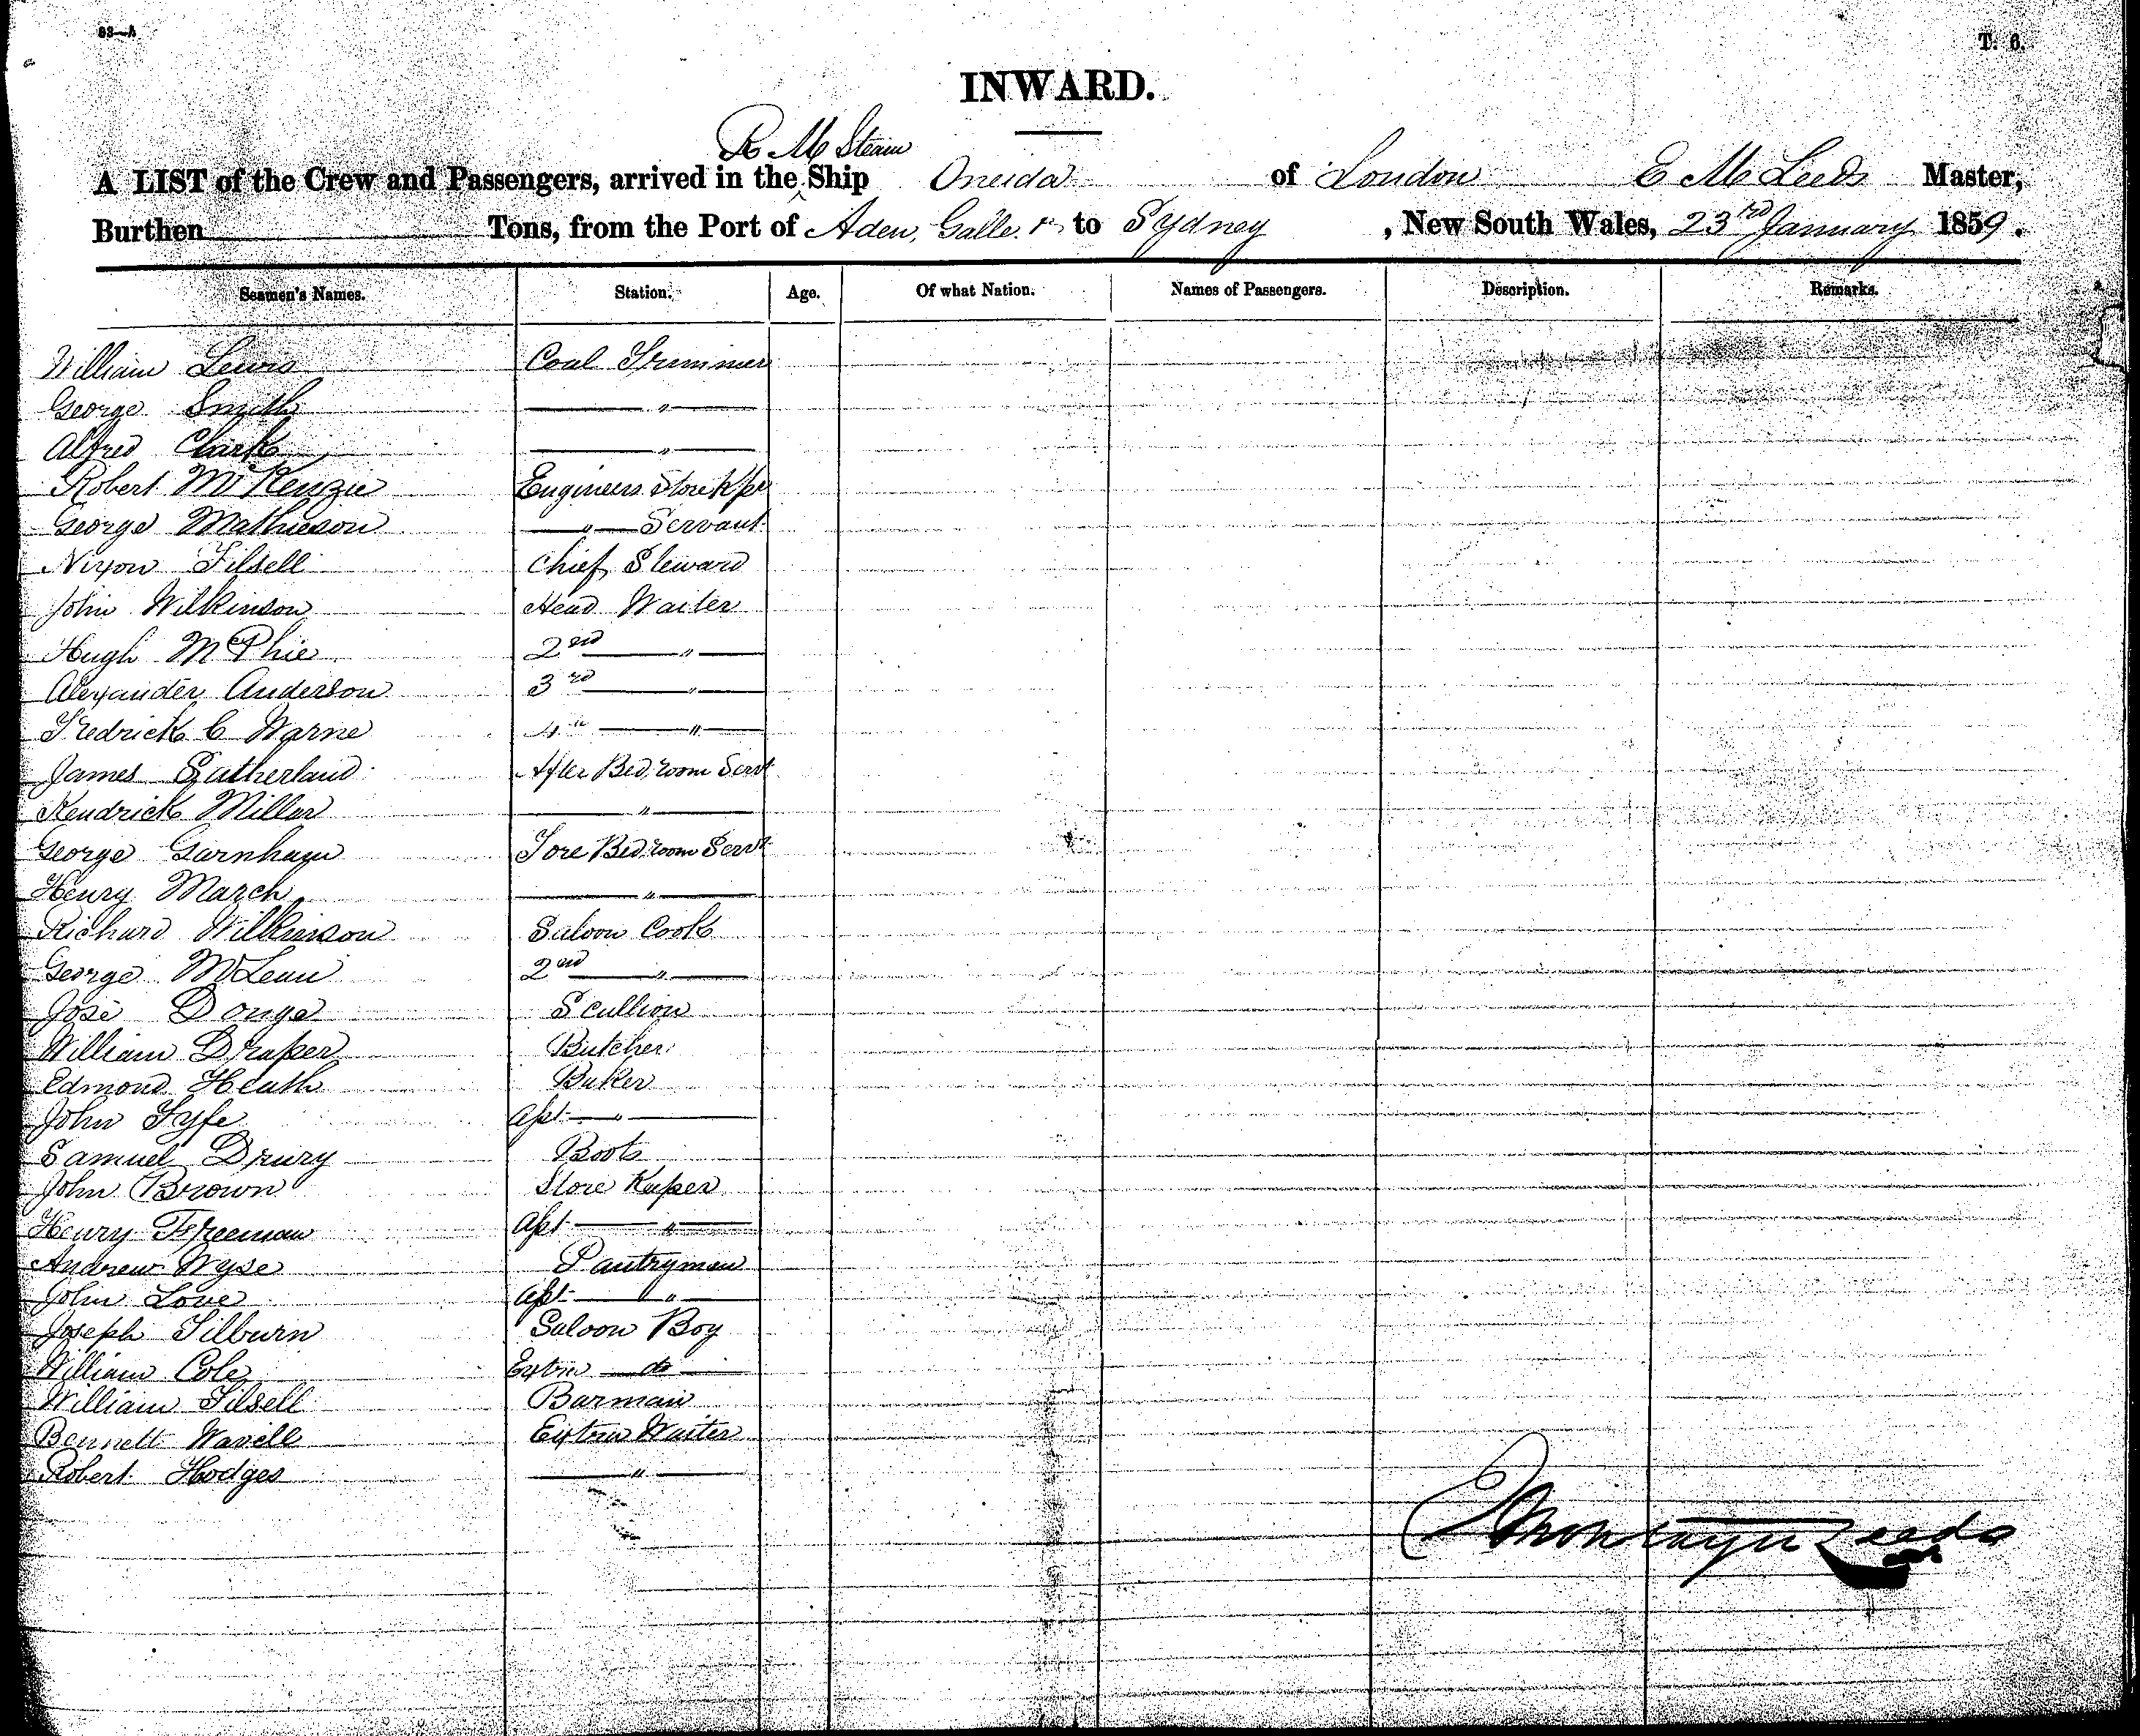 83—A
T. 6.
INWARD.
R M Steam
A LIST of the Crew and Passengers, arrived in the Ship Oneida of London E M Leeds Master,
Burthen Tons, from the Port of Aden, Galle. to Sydney, New South Wales, 23rd January 1859.
Seamen's Names. Station. Age. Of what Nation. Names of Passengers. Description. Remarks.
William Lewis Coal Trimmer
George Smith "
Alfred Clark "
Robert McKenzie Engineers Storekpr
George Mathieson " Servant
Nixon Filsell Chief Steward
John Wilkinson Head Waiter
Hugh McPhie 2nd "
Alexander Anderson 3rd "
Fredrick C Warne 4th "
James Sutherland After Bed room Servt
Kendrick Millar "
George Garnham Fore Bed room Servt
Henry March "
Richard Wilkinson Saloon Cook
George McLean 2nd "
José Scullion
William Draper Butcher
Edmond Heath Baker
John Fyfe Asst "
Samuel Drury Boots
John Brown Store Keeper
Henry Freeman Asst "
Andrew Wyse Pantryman
John Love Asst "
Joseph Silburn Saloon Boy
William Cole Extra do
William Filsell Barman
Bennett Wavell Extra Waiter
Robert Hodges "
E Montagu Leeds